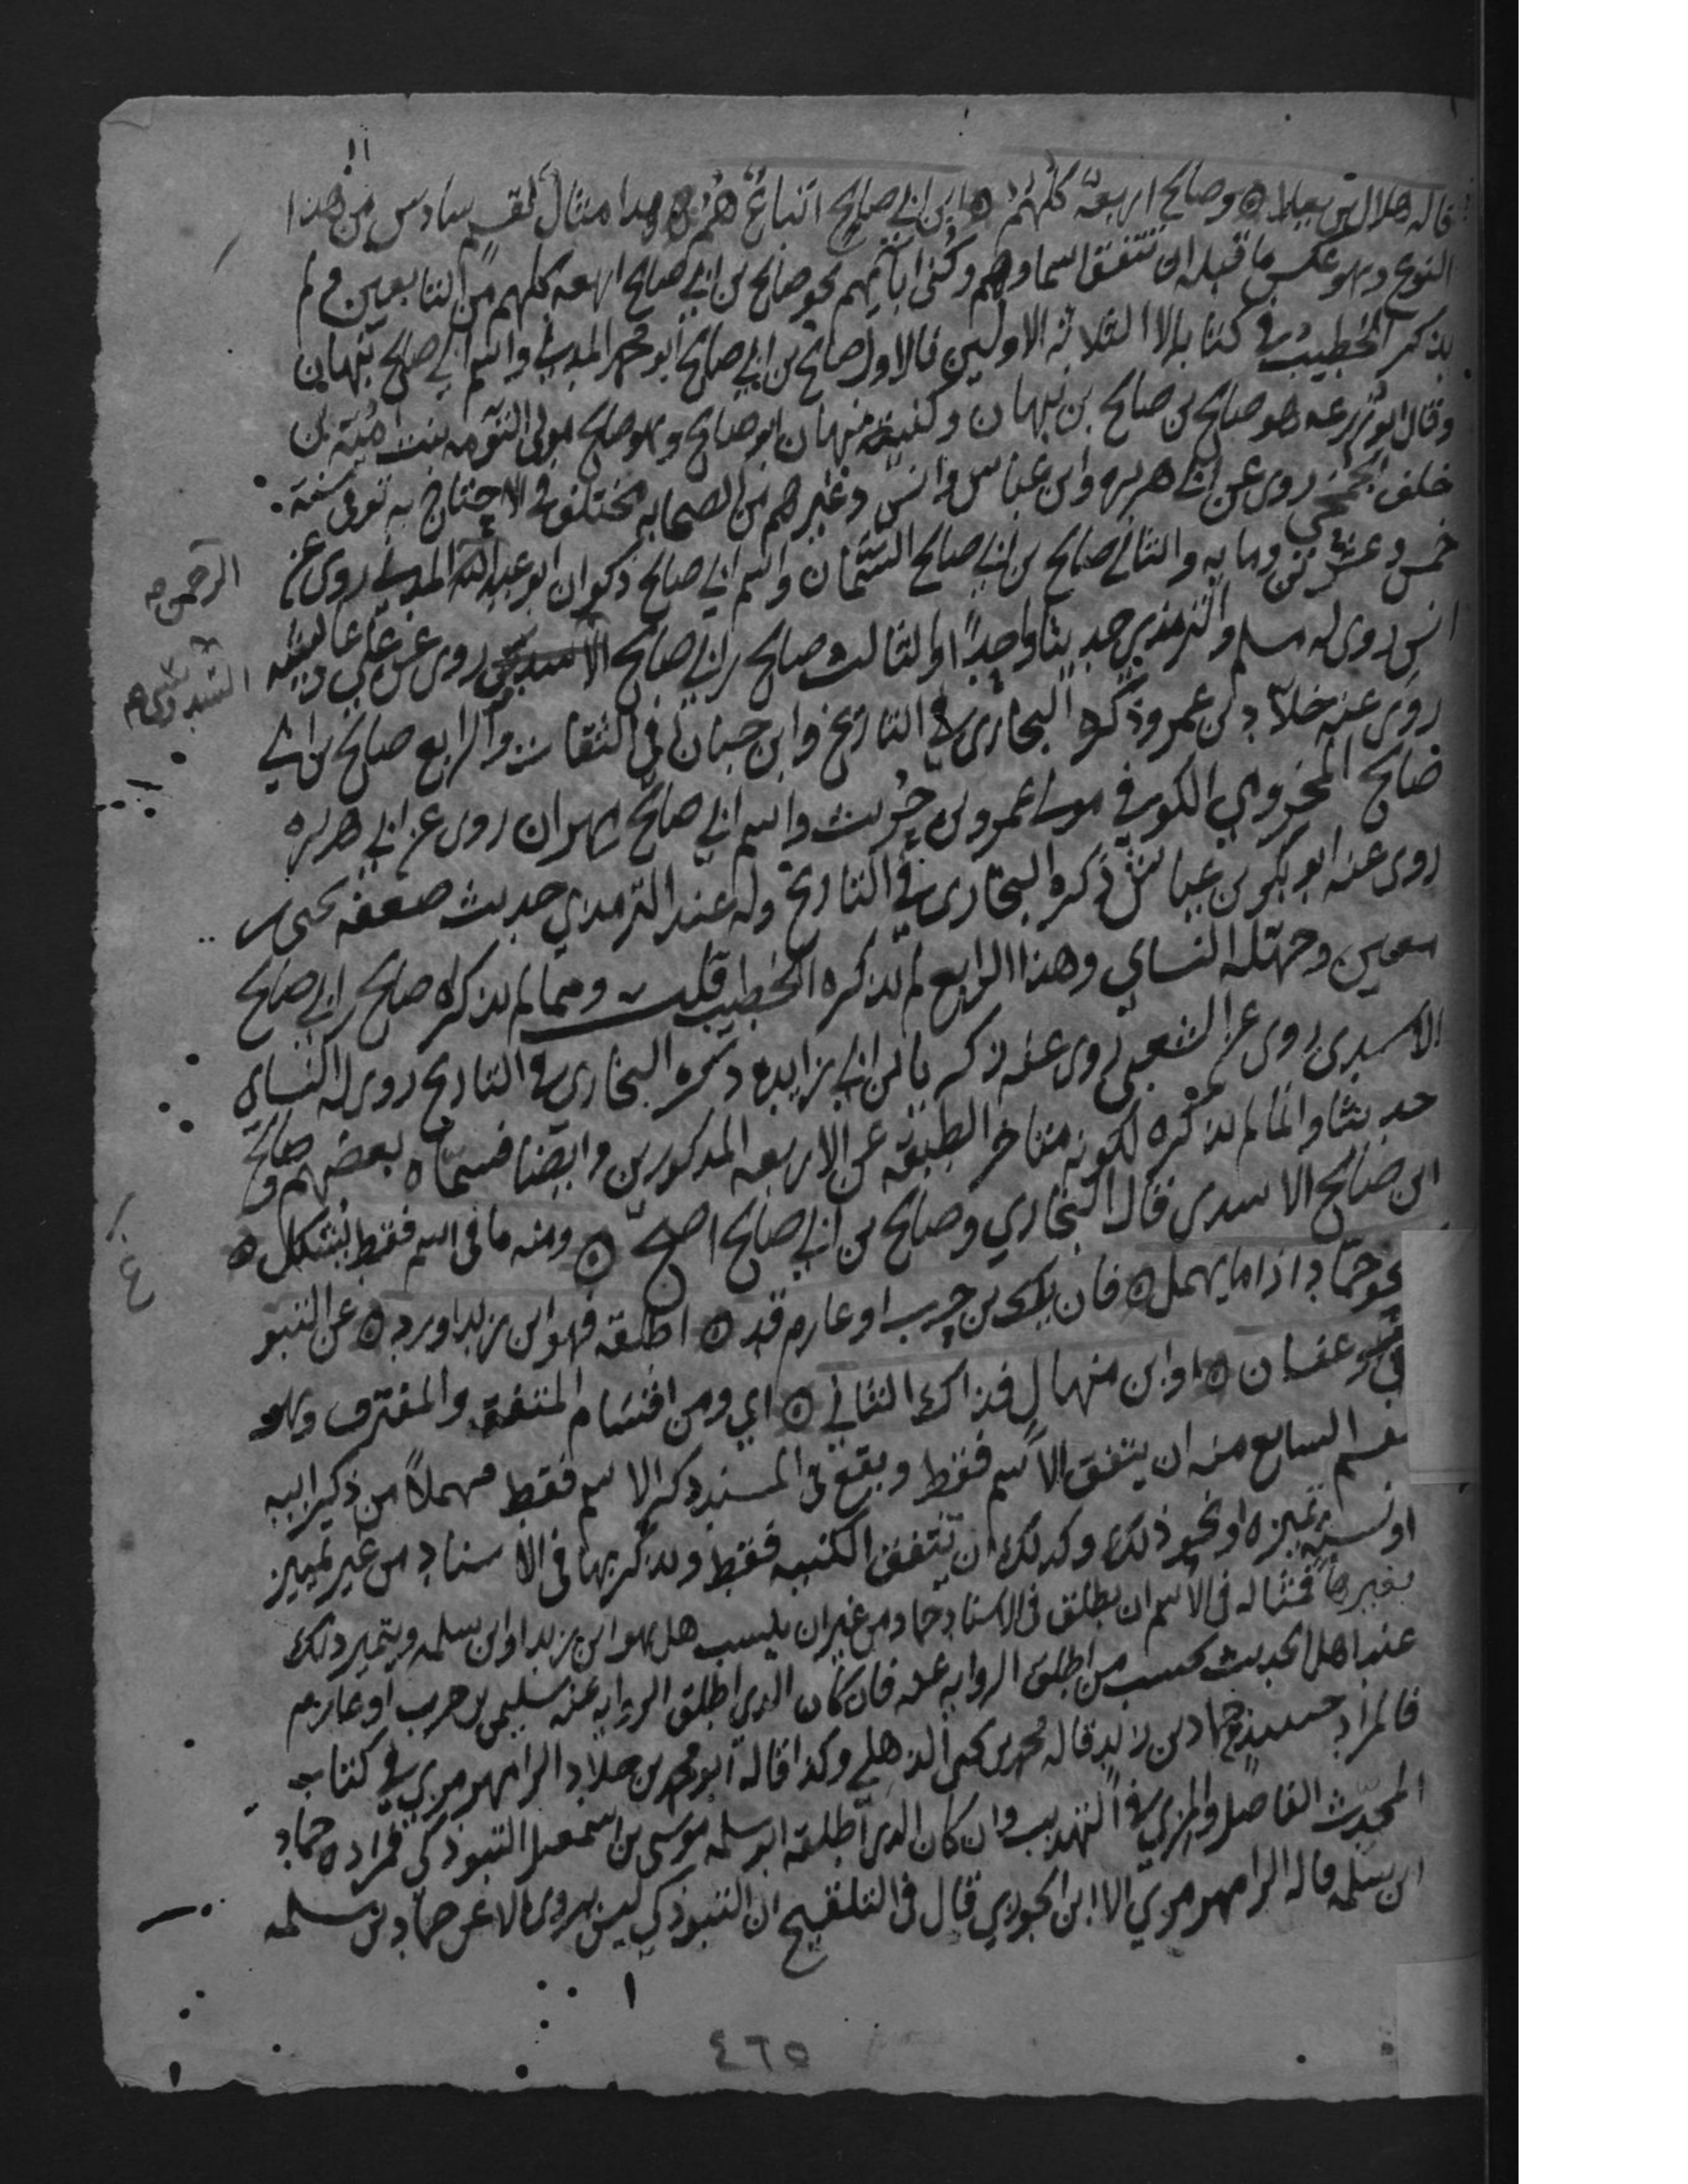 قاله هلال بن العلاء ۞ وصالح اربعة كلهم ۞ ابن ابي صالح اتباع هم ۞ هذا مثال لقسم سادس من هذا
النوع وهو عكس ما قبله ان تتفق اسماوهم وكنى ابائهم نحو صالح بن ابي صالح اربعه كلهم من التابعين ولم
يذكر الخطيب في كتابه الا الثلاثة الاولين فالاول صالح بن ابي صالح ابو محمد المدني واسم ابي صالح نبهان
وقال ابو زرعه هو صالح بن صالح بن نبهان وكنية نبهان ابو صالح وهو صالح مولى التوءمه بنت امية بن
خلف الجمحي روى عن ابي هريره وابن عباس وانس وغيرهم من الصحابه مختلف في الاحتجاج به توفي سنة
خمس وعشرين ومايه والثاني صالح بن ابي صالح السمان واسم ابي صالح ذكوان ابو عبد الرحمن المدني روى عن
انس روى له مسلم والترمذي حديثا واحدا والثالث صالح بن ابي صالح السدوسي روى عن علي وعايشه
روى عنه خلاد بن عمرو ذكره البخاري في التاريخ وابن حبان في الثقات والرابع صالح بن ابي
صالح المخزومي الكوفي مولى عمرو بن حريث واسم ابي صالح مهران روى عن ابي هريره
روى عنه ابو بكر بن عياش ذكره البخاري في التاريخ وله عند الترمذي حديث ضعفه يحيى بن
معين وجهله النساي وهذا الرابع لم يذكره الخطيب قلت ومما لم يذكره صالح بن ابي صالح
الاسدي روى عن الشعبي روى عنه زكريا بن ابي زايده ذكره البخاري في التاريخ روى له النساي
حديثا وانما لم يذكره لكونه متاخر الطبقة عن الاربعه المذكورين وايضا فسماه بعضهم صالح
ابن صالح الاسدي قال البخاري وصالح بن ابي صالح اصح ۞ ومنه ما في اسم فقط يشكل ۞
نحو حماد اذا ما يهمل ۞ فان يك بن حرب او عارم قد ۞ اطلقه فهو ابن زيد او ورد ۞ عن التبو
ذكي او عفان ۞ او ابن منهال فذاك الثاني ۞ اي ومن اقسام المتفق والمفترق وهو
القسم السابع منه ان يتفق الاسم فقط ويقع في السند ذكر الاسم فقط مهملا من ذكر ابيه
او نسبة تميزه او نحو ذلك وكذلك ان تتفق الكنيه فقط ويذكر بها في الاسناد من غير تمييز
بغيرها فمثاله في الاسم ان يطلق في الاسناد حماد من غير ان ينسب هل هو ابن زيد او ابن سلمه ويتميز ذلك
عند اهل الحديث بحسب من اطلق الروايه عنه فان كان الذي اطلق الروايه عنه سليمن بن حرب او عارم
فالمراد حينئذ حماد بن زيد قاله محمد بن يحيى الذهلي وكذا قاله ابو محمد بن خلاد الرامهرمزي في كتاب
المحدث الفاصل والمزي في التهذيب وان كان الذي اطلقه ابو سلمه موسى بن اسمعيل التبوذكي فمراده حماد
ابن سلمه قاله الرامهرمزي الا ابن الجوزي قال في التلقيح ان التبوذكي ليس يروي الا عن حماد بن سلمه
الرحمن
السدوسي
٤٦٥